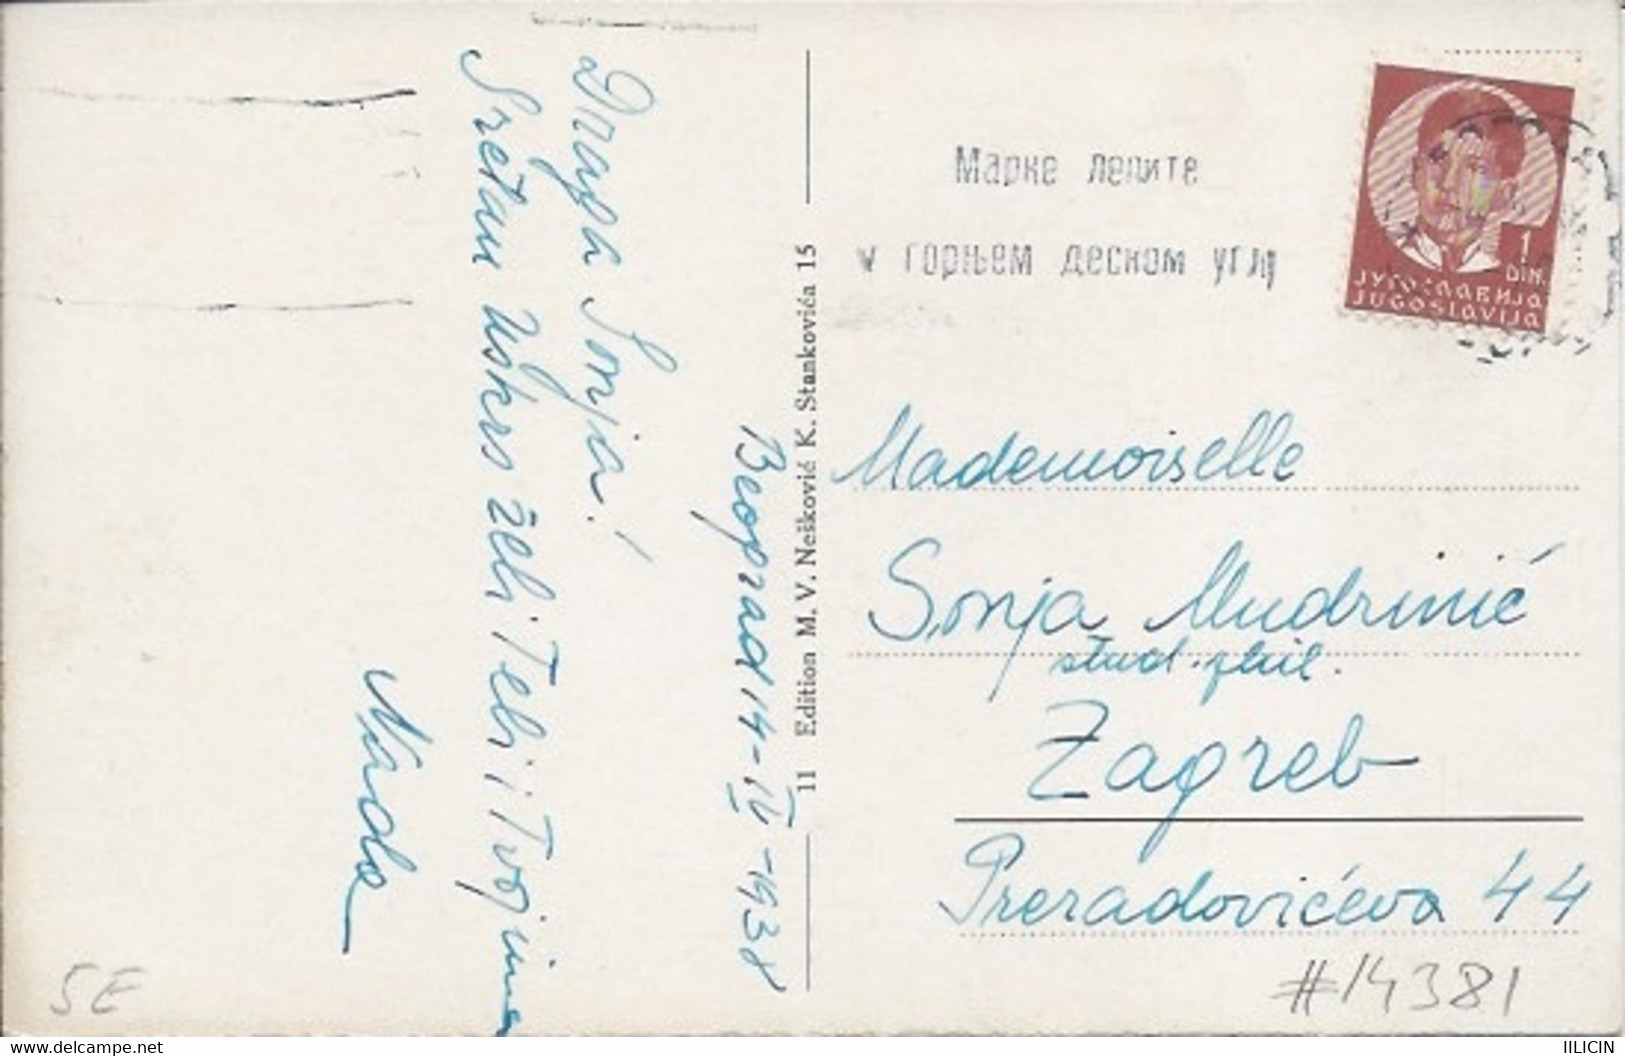 Draga Sonja!
Sretan Uskrs želi Tebi i Tvojima
Nada
Beograd 14-IV-1938
11 Edition M. V. Nešković K. Stankovića 15
Марке лепите
у горњем десном углу
1
DIN.
ЈУГОСЛАВИЈА
JUGOSLAVIJA
Mademoiselle
Sonja Mudrinić
stud. phil.
Zagreb
Preradovićeva 44
#14381
5E
IILICIN
delcampe.net